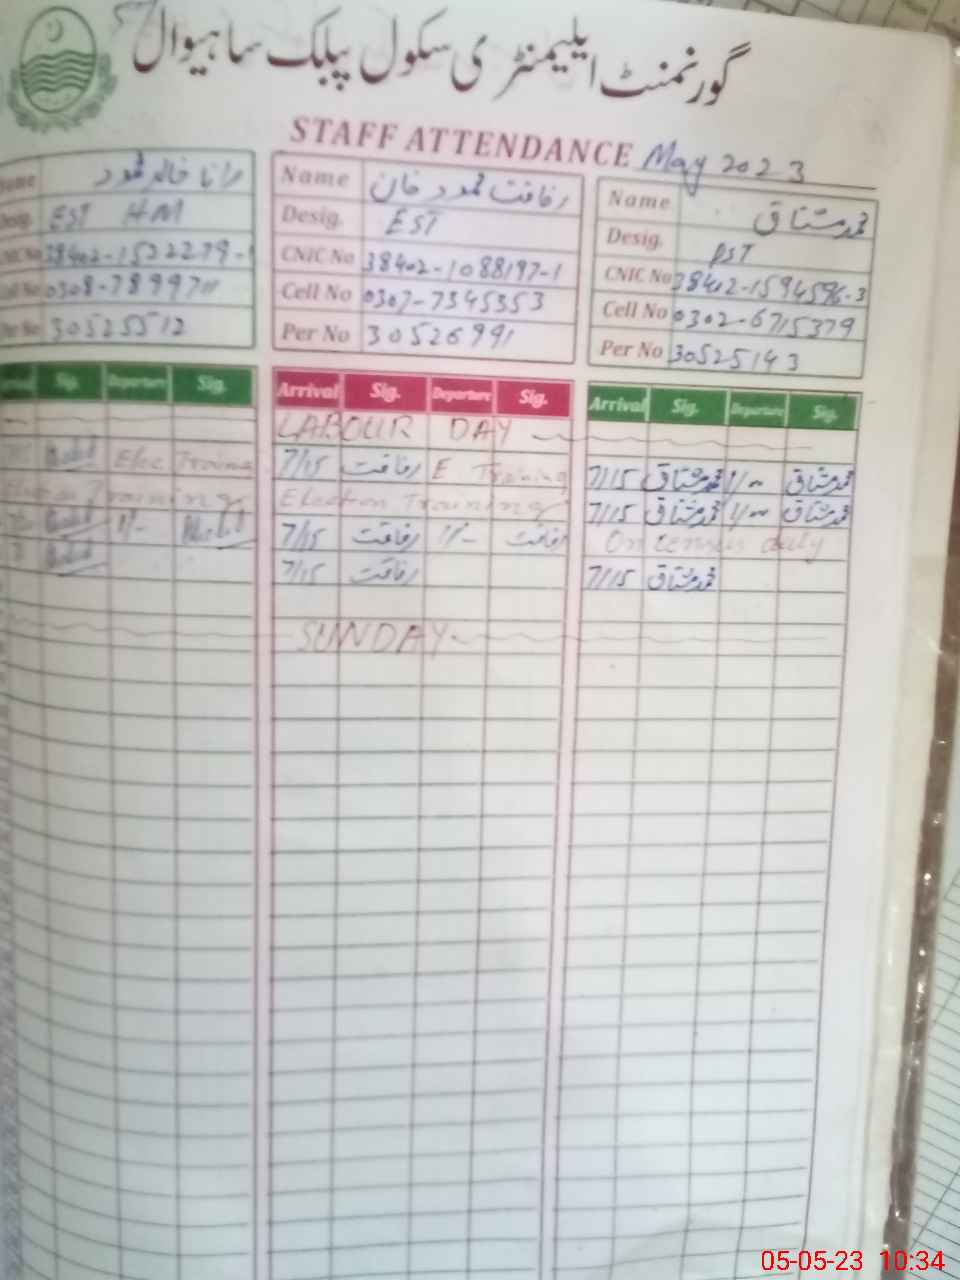 گورنمنٹ ایلیمنٹری سکول پبلک ساہیوال
STAFF ATTENDANCE May 2023
Name رانا خالد محمود
Desig. EST HM
CNIC No 38402-1522279-
Cell No 0308-789971
Per No 30525512
Name رفاقت محمود خان
Desig. EST
CNIC No 38402-1088197-1
Cell No 0307-7345353
Per No 30526991
Name محمد مشتاق
Desig. PST
CNIC No 38402-1594596-3
Cell No 0302-6715379
Per No 30525143
Sig. Departure Sig.
Elec. Training
Training
1/-
Arrival Sig. Departure Sig.
LABOUR DAY
7/15 رفاقت E Training
Election Training
7/15 رفاقت 1/- رفاقت
7/15 رفاقت
SUNDAY
Arrival Sig. Departure Sig.
7/15 محمد مشتاق 1/00 محمد مشتاق
7/15 محمد مشتاق 1/00 محمد مشتاق
On census duty
7/15 محمد مشتاق
05-05-23 10:34